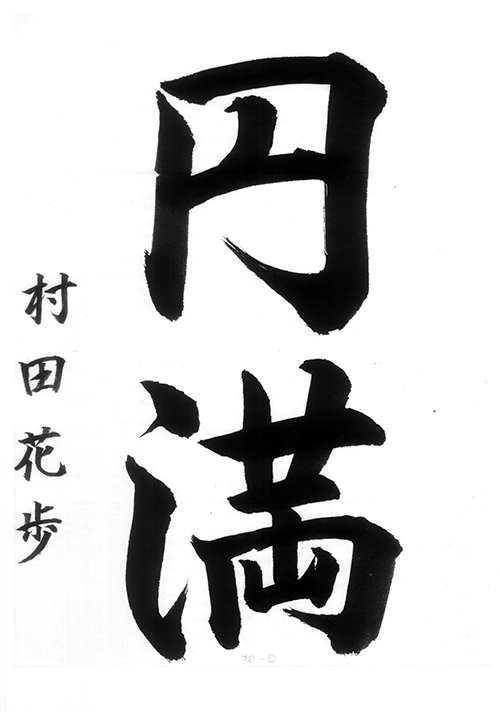 円満
村田花歩